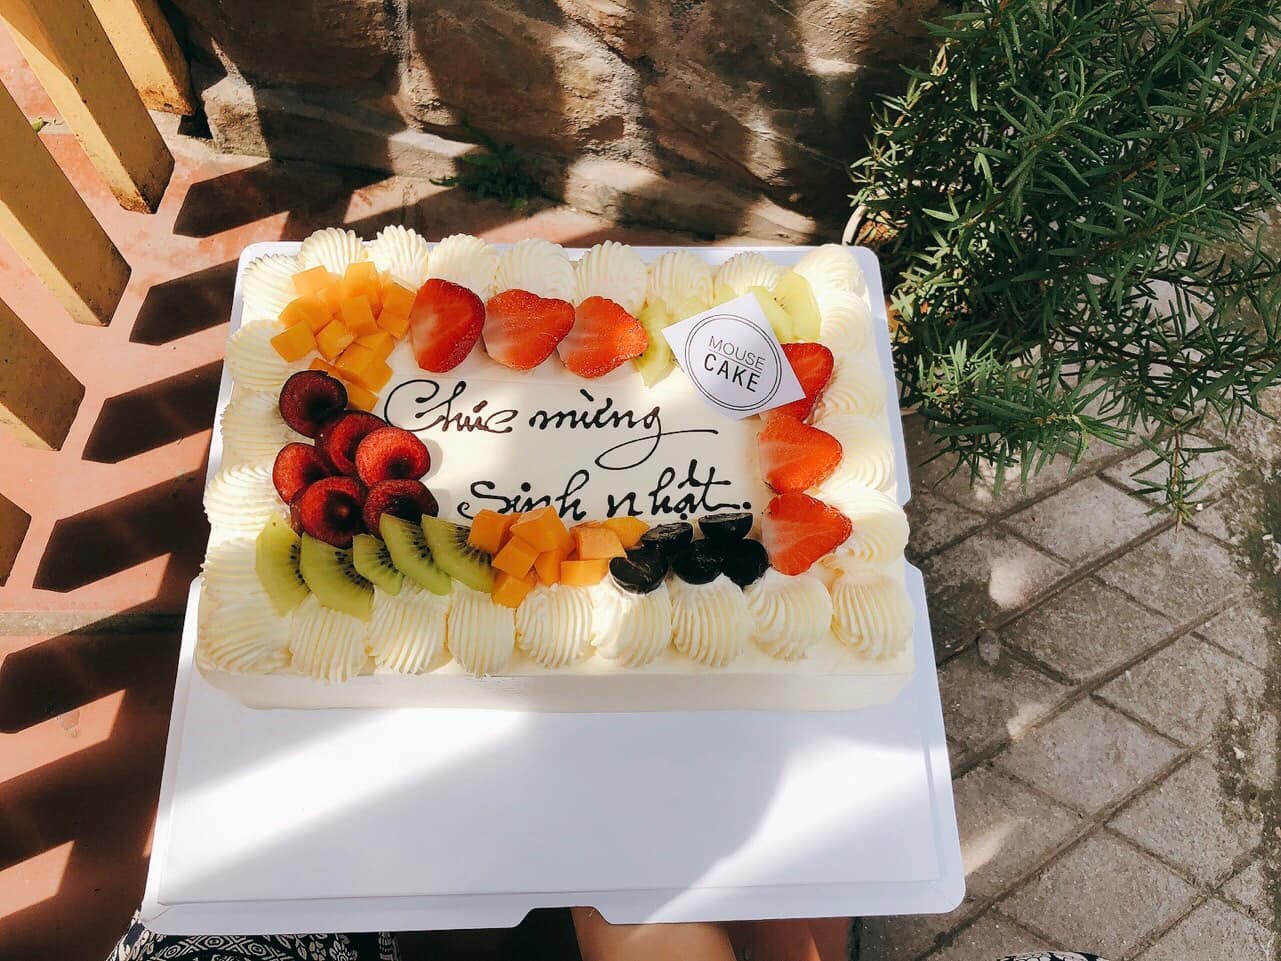 MOUSE
CAKE
Chúc mừng
Sinh nhật.